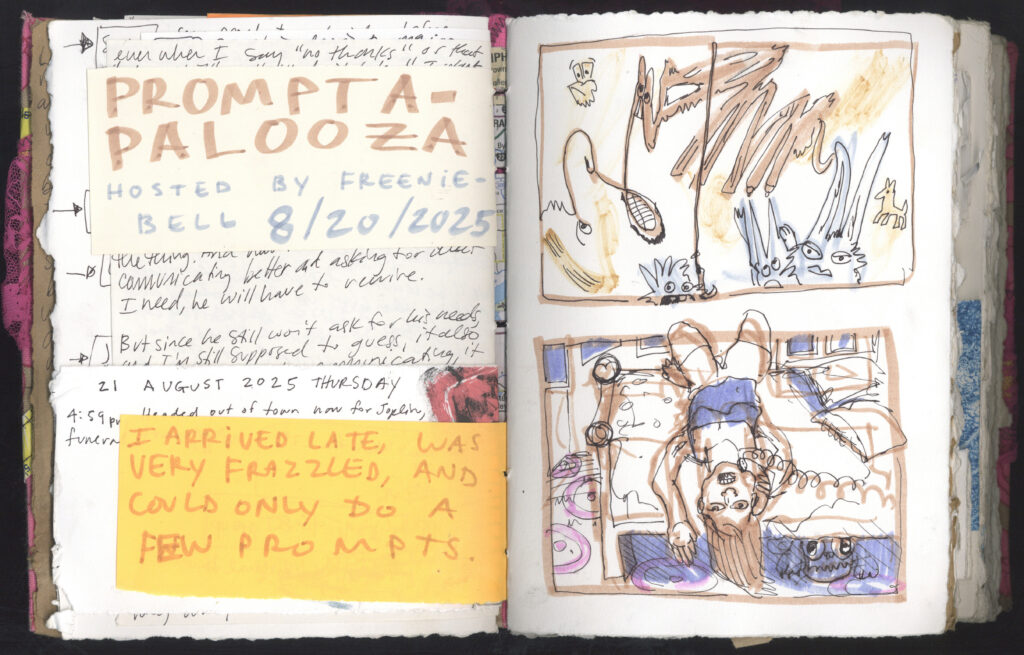 even when I say "no thanks" or that
PROMPT A-
PALOOZA
HOSTED BY FREENIE-
BELL 8/20/2025
the thing. And
communicating better and asking for what
I need, he will have to rewire.
But since he still won't ask for his needs,
and I'm still supposed to guess, it also
communicating, it
21 AUGUST 2025 THURSDAY
4:59 pm Headed out of town now for Joplin,
I ARRIVED LATE, WAS
VERY FRAZZLED, AND
COULD ONLY DO A
FEW PROMPTS.